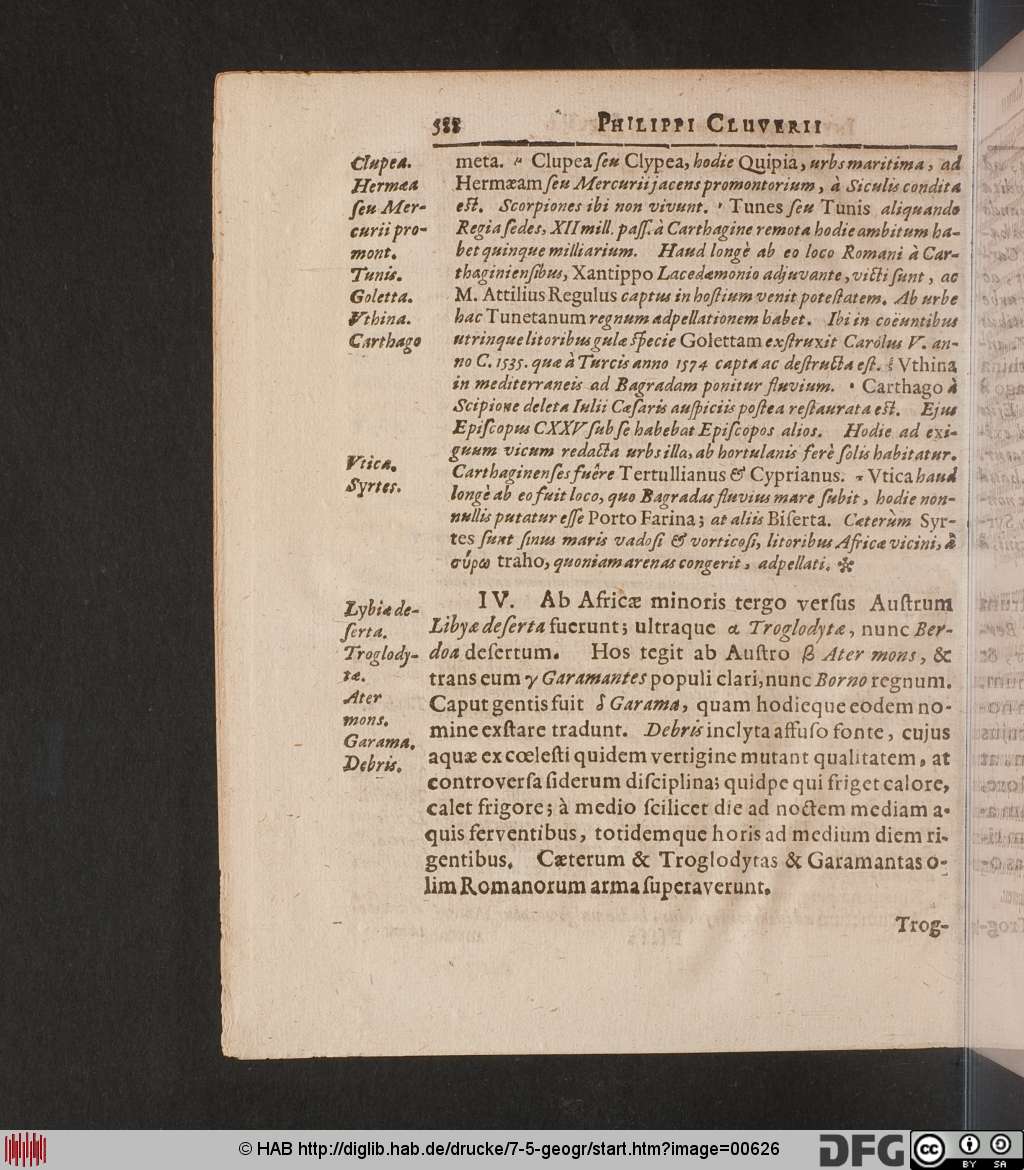 588 PHILIPPI CLUVERII
Clupea.
Hermæa
ſeu Mer-
curii pro-
mont.
Tunis.
Goletta.
Vthina.
Carthago
Vtica.
Syrtes.
meta. Clupea ſeu Clypea, hodie Quipia, urbs maritima, ad
Hermæam ſeu Mercurii jacens promontorium, à Siculis condita
eſt. Scorpiones ibi non vivunt. Tunes ſeu Tunis aliquando
Regia ſedes, XII mill. paſſ. à Carthagine remota hodie ambitum ha-
bet quinque milliarium. Haud longè ab eo loco Romani à Car-
thaginienſibus, Xantippo Lacedæmonio adjuvante, victi ſunt, ac
M. Attilius Regulus captus in hoſtium venit poteſtatem. Ab urbe
hac Tunetanum regnum adpellationem habet. Ibi in coëuntibus
utrinque litoribus gulæ ſpecie Golettam exſtruxit Carolus V. an-
no C. 1535. quæ à Turcis anno 1574 capta ac deſtructa eſt. Vthina
in mediterraneis ad Bagradam ponitur fluvium. Carthago à
Scipione deleta Iulii Cæſaris auſpiciis poſtea reſtaurata eſt. Ejus
Epiſcopus CXXV ſub ſe habebat Epiſcopos alios. Hodie ad exi-
guum vicum redacta urbs illa, ab hortulanis ferè ſolis habitatur.
Carthaginenſes fuêre Tertullianus & Cyprianus. Vtica haud
longè ab eo fuit loco, quo Bagradas fluvius mare ſubit, hodie non-
nullis putatur eſſe Porto Farina; at aliis Biſerta. Cæterùm Syr-
tes ſunt ſinus maris vadoſi & vorticoſi, litoribus Africæ vicini, à
σύρω traho, quoniam arenas congerit, adpellati. ✻
Lybiæ de-
ſerta.
Troglody-
tæ.
Ater
mons.
Garama.
Debris.
IV. Ab Africæ minoris tergo verſus Auſtrum
Libyæ deſerta fuerunt; ultraque α Troglodytæ, nunc Ber-
doa deſertum. Hos tegit ab Auſtro β Ater mons, &
trans eum γ Garamantes populi clari, nunc Borno regnum.
Caput gentis fuit δ Garama, quam hodieque eodem no-
mine exſtare tradunt. Debris inclyta affuſo fonte, cujus
aquæ ex cœleſti quidem vertigine mutant qualitatem, at
controverſa ſiderum diſciplina; quidpe qui friget calore,
calet frigore; à medio ſcilicet die ad noctem mediam a-
quis ferventibus, totidemque horis ad medium diem ri-
gentibus. Cæterum & Troglodytas & Garamantas o-
lim Romanorum arma ſuperaverunt.
Trog-
© HAB http://diglib.hab.de/drucke/7-5-geogr/start.htm?image=00626
DFG
cc
BY SA